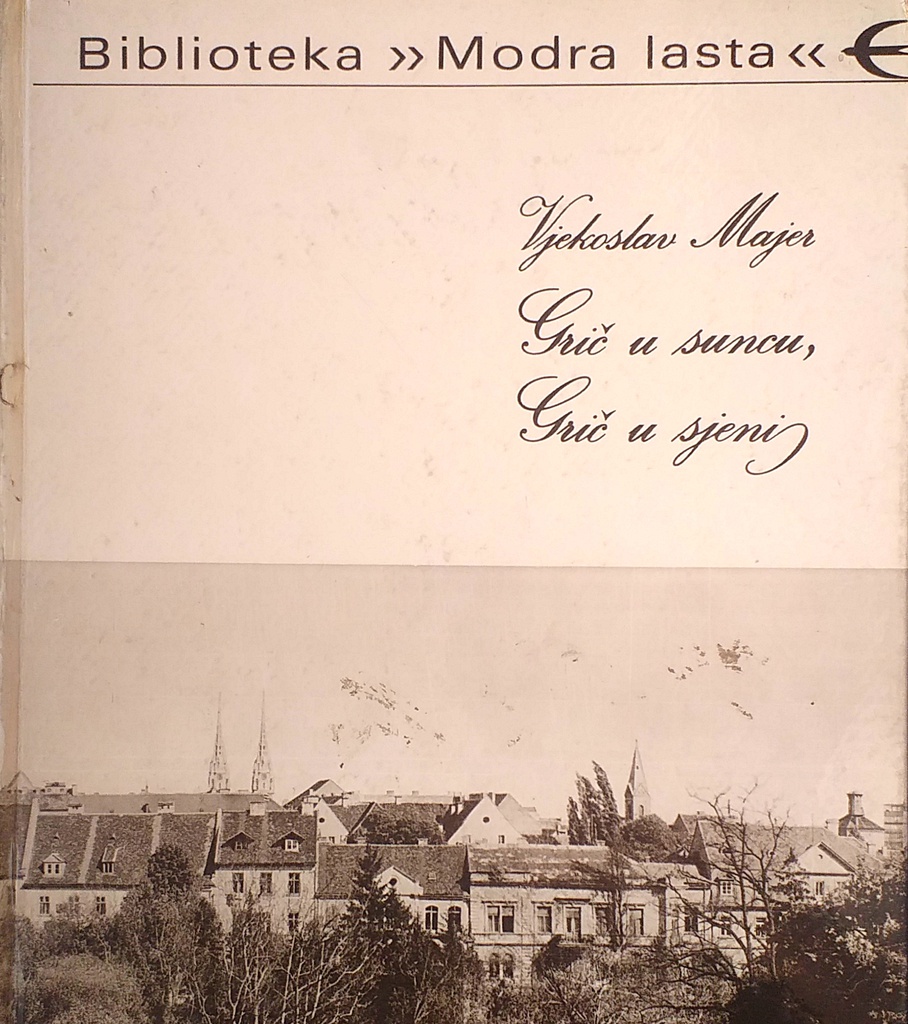 Biblioteka »Modra lasta«
Vjekoslav Majer
Grič u suncu,
Grič u sjeni